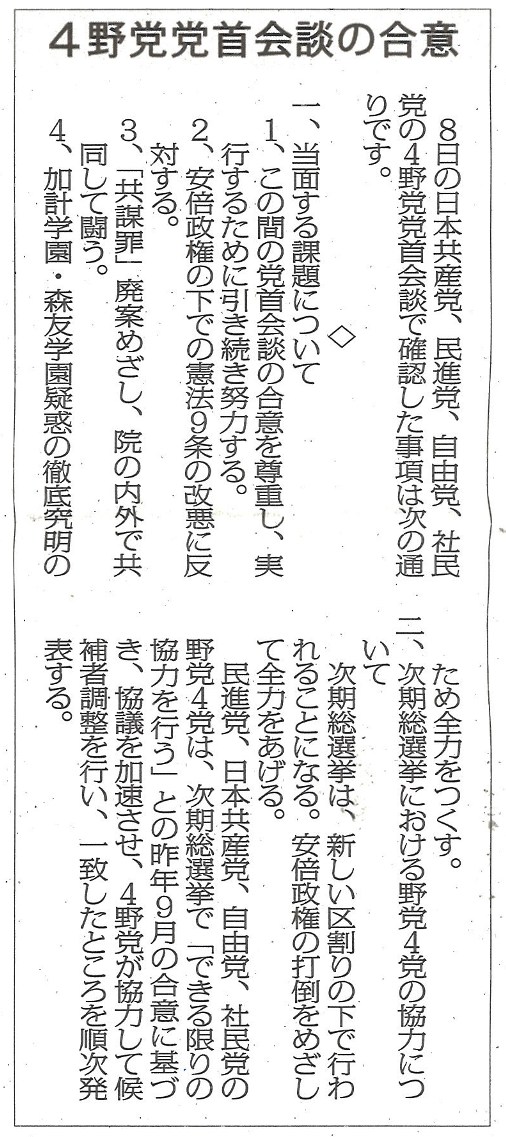 ４野党党首会談の合意
８日の日本共産党、民進党、自由党、社民
党の４野党党首会談で確認した事項は次の通
りです。
◇
一、当面する課題について
１、この間の党首会談の合意を尊重し、実
行するために引き続き努力する。
２、安倍政権の下での憲法９条の改悪に反
対する。
３、「共謀罪」廃案めざし、院の内外で共
同して闘う。
４、加計学園・森友学園疑惑の徹底究明の
ため全力をつくす。
二、次期総選挙における野党４党の協力につ
いて
次期総選挙は、新しい区割りの下で行わ
れることになる。安倍政権の打倒をめざし
て全力をあげる。
民進党、日本共産党、自由党、社民党の
野党４党は、次期総選挙で「できる限りの
協力を行う」との昨年９月の合意に基づ
き、協議を加速させ、４野党が協力して候
補者調整を行い、一致したところを順次発
表する。